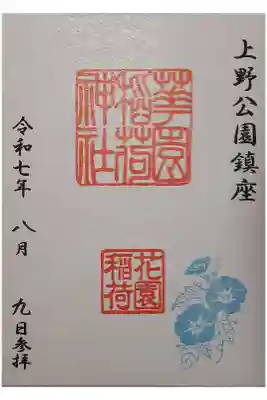 上野公園鎮座
華園
稲荷
神社
花園
稲荷
令和七年 八月 九日参拝